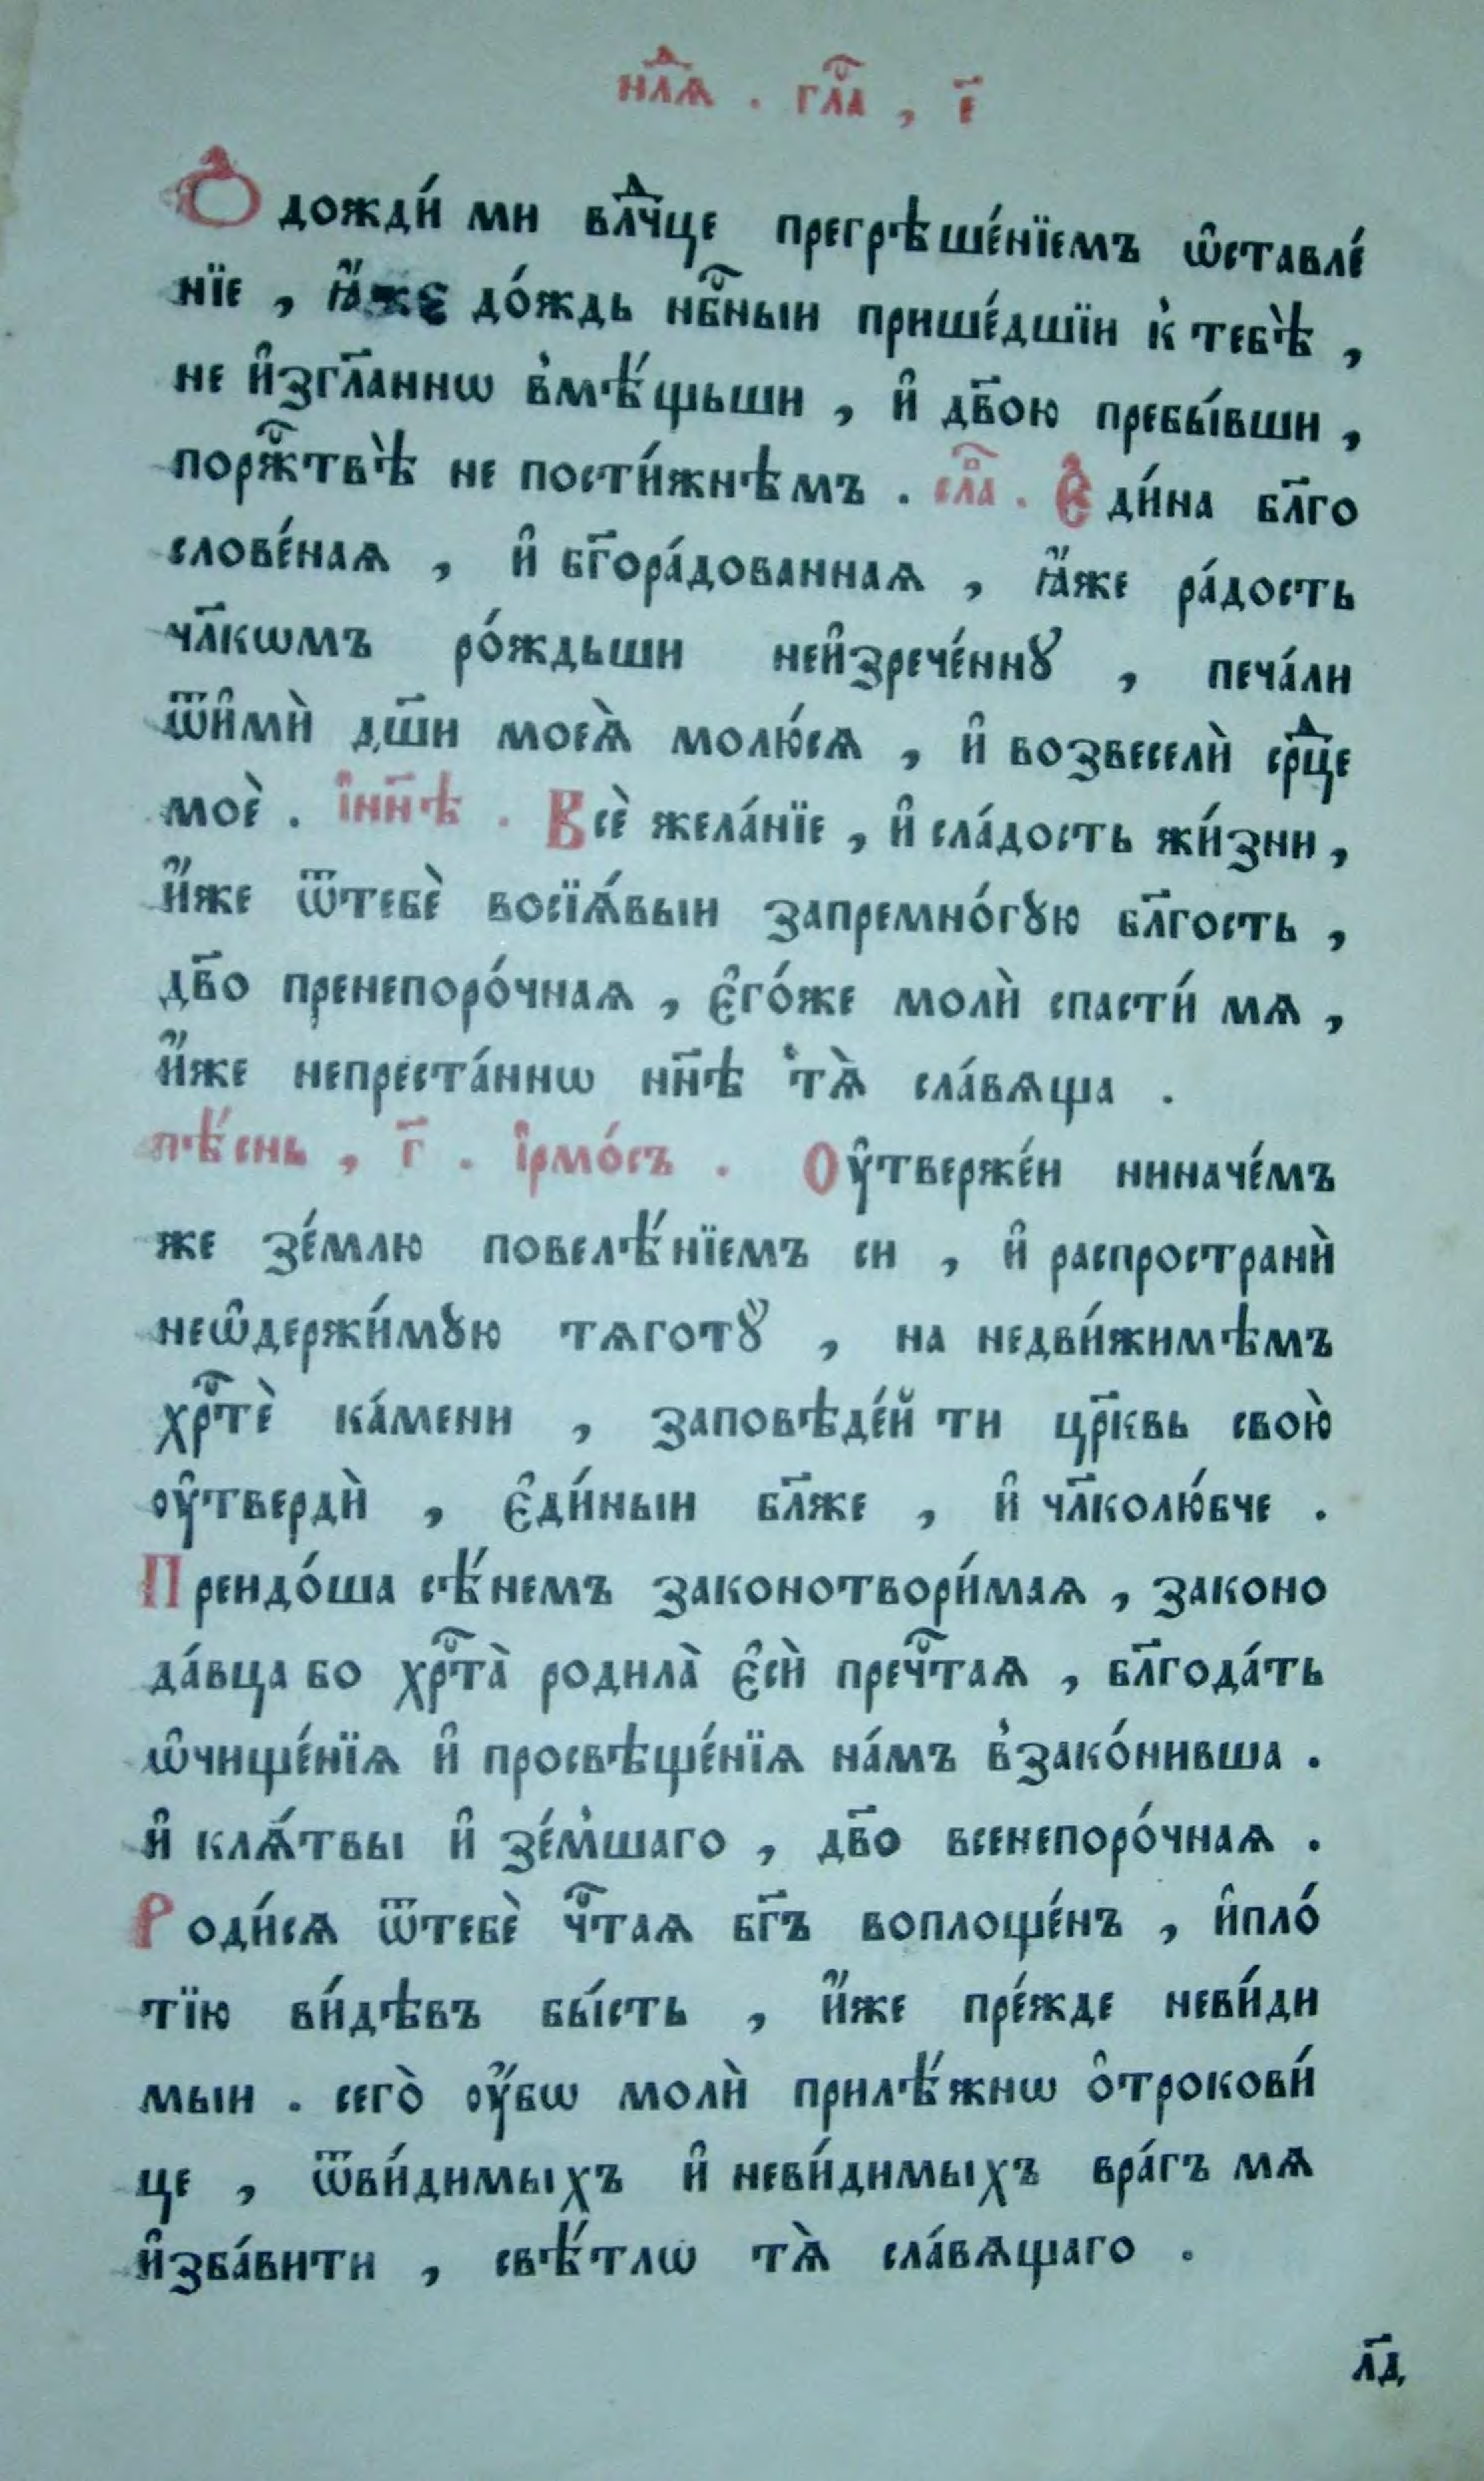 нⷣлѧ . глⷭ҇а , є҃
Ѻ҆дожди́ ми влⷣчце прегрѣше́нїемъ ѡ҆ставле́
нїе , ꙗ҆́же до́ждь нбⷭ҇ныи прише́дшїи к̾ тебѣ̀ ,
не и҆згл҃аннѡ в̾мѣ́щьши , и҆ дв҃ою пребы́вши ,
поржⷭ҇твѣ̀ не пости́жнѣмъ . слⷡ҇а . Є҆ди́на бл҃го
слове́наѧ , и҆ бг҃ора́дованнаѧ , ꙗ҆́же ра́дость
чл҃кѡмъ ро́ждьши неи҆зрече́ннꙋ , печа́ли
ѿи҆мѝ дш҃и моеѧ̀ молю́сѧ , и҆ возвеселѝ срⷣце
моѐ . і҆нн҃ѣ . Всѐ жела́нїе , и҆ сла́дость жи́зни ,
и҆́же ѿтебѐ восїѧ́выи запремно́гꙋю бл҃гость ,
дв҃о пренепоро́чнаѧ , є҆го́же молѝ спасти́ мѧ ,
и҆́же непреста́ннѡ нн҃ѣ тѧ̀ сла́вѧща .
пѣ́снь , г҃ . і҆рмо́съ . Оу҆тверже́й ниначе́мъ
же зе́млю повелѣ́нїемъ си , и҆ распространѝ
неѡ҆держи́мꙋю тѧготꙋ̀ , на недви́жимѣмъ
хрⷭ҇тѐ ка́мени , заповѣде́й ти цр҃квь свою̀
оу҆твердѝ , є҆ди́ныи бл҃же , и҆ чл҃колю́бче .
Преидо́ша сѣ́немъ законотвори́маѧ , законо
да́вца бо хрⷭ҇та̀ родила̀ є҆сѝ пречⷭ҇таѧ , бл҃года́ть
ѡ҆чище́нїѧ и҆ просвѣще́нїѧ на́мъ в̾зако́нивша .
и҆ клѧ́твы и҆ зе́м̾шаго , дв҃о всенепоро́чнаѧ .
Роди́сѧ ѿтебѐ чⷭ҇таѧ бг҃ъ воплоще́нъ , и҆пло́
тїю ви́дѣвъ бы́сть , и҆́же пре́жде неви́ди
мыи . сего̀ оу҆́бѡ молѝ прилѣ́жнѡ ѻ҆трокови́
це , ѿви́димыхъ и҆ неви́димыхъ вра́гъ мѧ
и҆зба́вити , свѣ́тлѡ тѧ̀ сла́вѧщаго .
л҃д